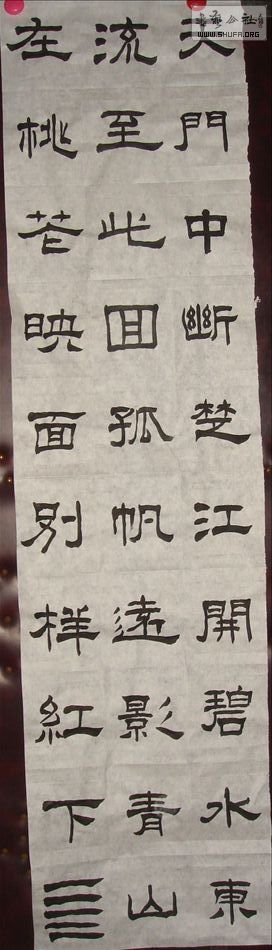 天門中斷楚江開碧水東
流至此回孤帆遠影青山
在桃花映面別樣紅下亖
WWW.SHUFA.ORG